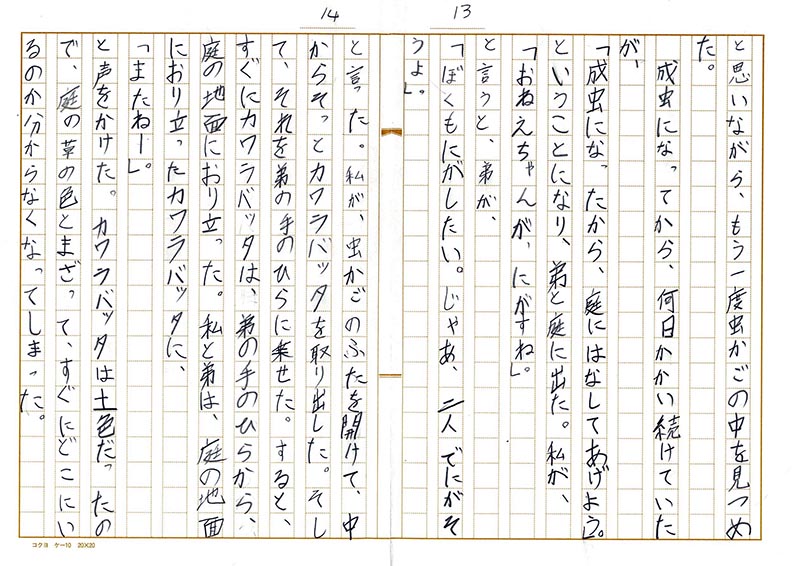 13
と思いながら、もう一度虫かごの中を見つめ
た。
成虫になってから、何日かかい続けていた
が、
「成虫になったから、庭にはなしてあげよう」。
ということになり、弟と庭に出た。私が、
「おねえちゃんが、にがすね」。
と言うと、弟が、
「ぼくもにがしたい。じゃあ、二人でにがそ
うよ」。
14
と言った。私が、虫かごのふたを開けて、中
からそっとカワラバッタを取り出した。そし
て、それを弟の手のひらに乗せた。すると、
すぐにカワラバッタは、弟の手のひらから、
庭の地面におり立った。私と弟は、庭の地面
におり立ったカワラバッタに、
「またねー」。
と声をかけた。カワラバッタは土色だったの
で、庭の草の色とまざって、すぐにどこにい
るのか分からなくなってしまった。
コクヨ ケー10 20×20